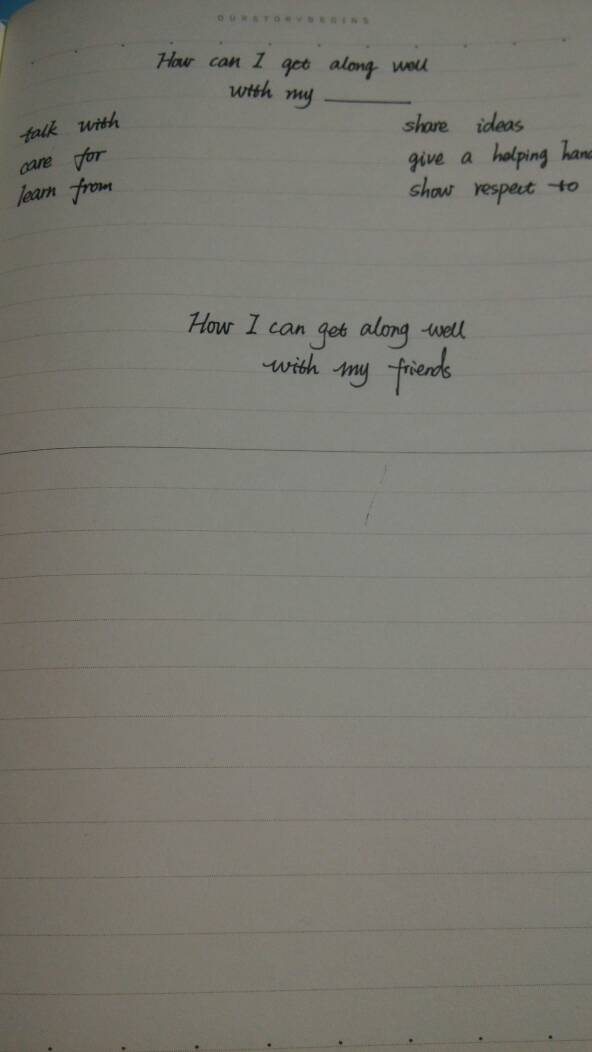 OURSTORYBEGINS
How can I get along well
with my ________
talk with
care for
learn from
share ideas
give a helping hand
show respect to
How I can get along well
with my friends